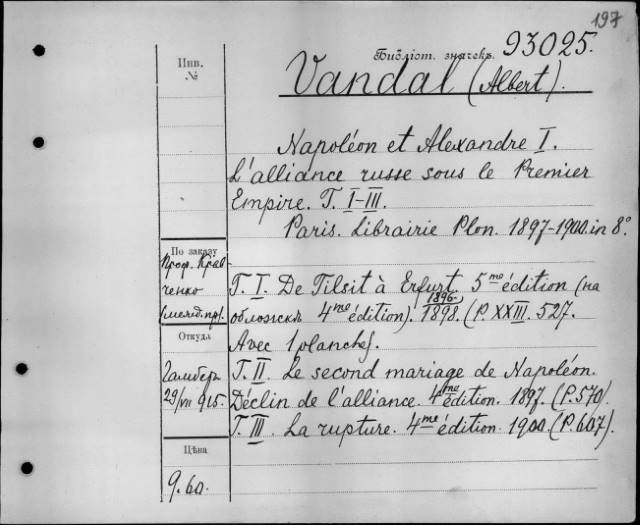 197
Библіот. значекъ 93025.
Инв.
№
Vandal (Albert).
Napoléon et Alexandre I.
L'alliance russe sous le Premier
Empire. T. I-III.
Paris. Librairie Plon. 1897-1900. in 8°
По заказу
Проф. Крав-
ченко
(межд. пр.).
T. I. De Tilsit à Erfurt. 5me édition (на
1896.
обложкѣ 4me édition). 1898. (P. XXIII. 527.
Avec 1 planche).
Откуда
Гамберъ
29/VII 915.
T. II. Le second mariage de Napoléon.
Déclin de l'alliance. 4me édition. 1897. (P. 570).
T. III. La rupture. 4me édition. 1900. (P. 607).
Цѣна
9.60.